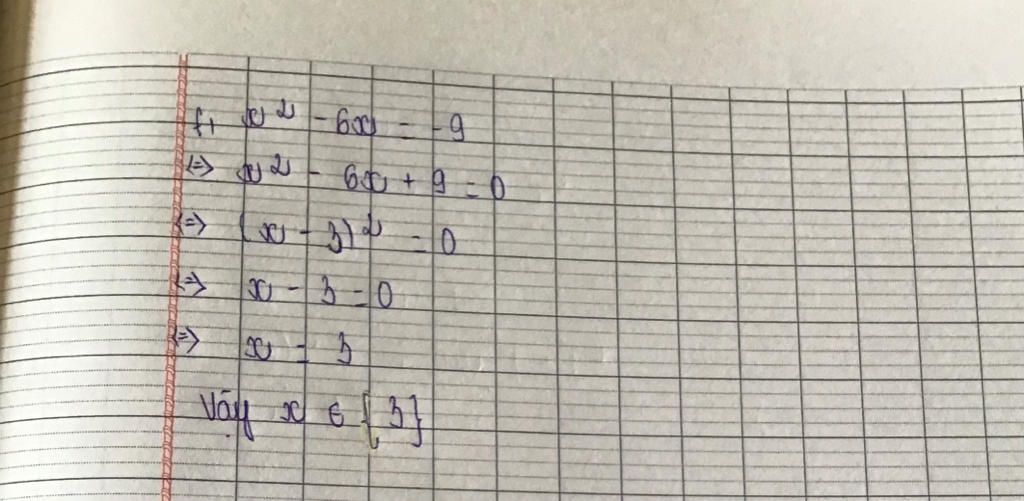 f, x² - 6x = -9
<=> x² - 6x + 9 = 0
<=> (x - 3)² = 0
<=> x - 3 = 0
<=> x = 3
Vậy x ∈ {3}